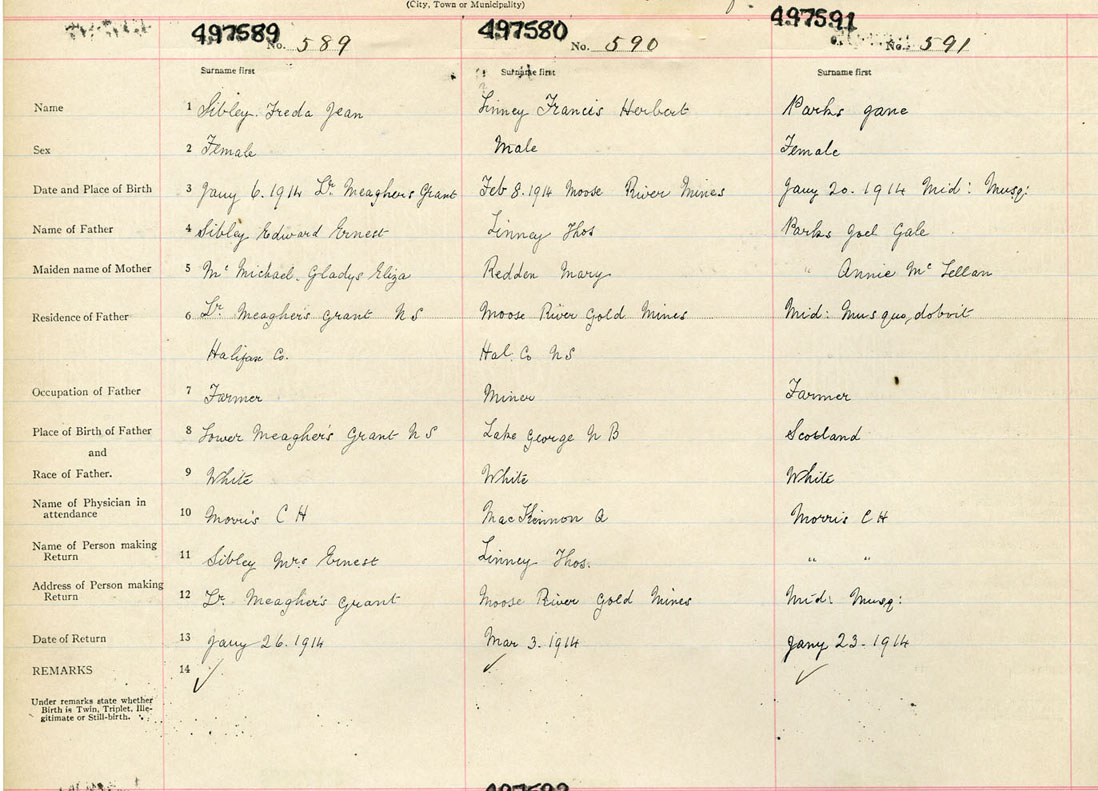 (City, Town or Municipality)
497589 No. 589 497580 No. 590 497591 No. 591
Surname first Surname first Surname first
Name 1 Sibley Freda Jean Linney Francis Herbert Parks Jane
Sex 2 Female Male Female
Date and Place of Birth 3 Jany 6. 1914 Lr. Meaghers Grant Feb 8. 1914 Moose River Mines Jany 20. 1914 Mid: Musq:
Name of Father 4 Sibley Edward Ernest Linney Thos Parks Joel Gale
Maiden name of Mother 5 Mc Michael. Gladys Eliza Redden Mary " Annie Mc Lellan
Residence of Father 6 Lr. Meagher's Grant N S Moose River Gold Mines Mid: Musquodoboit
Halifax Co. Hal. Co N S
Occupation of Father 7 Farmer Miner Farmer
Place of Birth of Father 8 Lower Meagher's Grant N S Lake George N B Scotland
and
Race of Father. 9 White White White
Name of Physician in
attendance 10 Morris C H MacKinnon A Morris C H
Name of Person making
Return 11 Sibley Mrs Ernest Linney Thos. " "
Address of Person making
Return 12 Lr. Meagher's Grant Moose River Gold Mines Mid: Musq:
Date of Return 13 Jany 26. 1914 Mar 3. 1914 Jany 23. 1914
REMARKS 14 ✓ ✓ ✓
Under remarks state whether
Birth is Twin, Triplet, Ille-
gitimate or Still-birth.